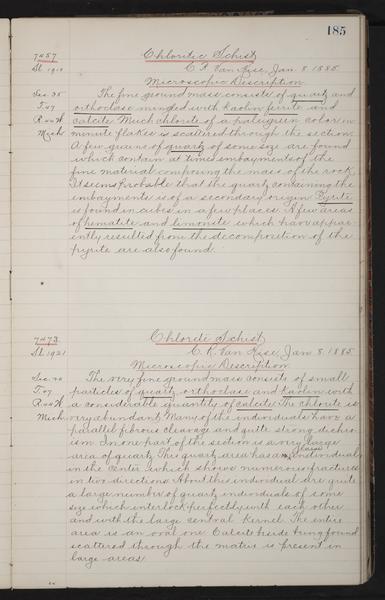 185
7457 Chloritic Schist
Sl. 1910 C. R. Van Hise, Jan. 8. 1885
Microscopic Description
Sec. 35 The fine ground mass consists of quartz and
T. 47 orthoclase mingled with kaolin ferrite and
R 44 W calcite. Much chlorite of a pale green color in
Mich. minute flakes is scattered through the section.
A few grains of quartz of some size are found
which contain at times embayments of the
fine material composing the mass of the rock.
It seems probable that the quartz containing the
embayments is of a secondary origin. Pyrite
is found in cubes in a few places. A few areas
of hematite and limonite which have appar-
ently resulted from the decomposition of the
pyrite are also found.
7473 Chlorite Schist
Sl. 1921 C. R. Van Hise, Jan. 8. 1885
Microscopic Description
The very fine ground mass consists of small
T. 47 particles of quartz, orthoclase and kaolin with
a considerable quantity of calcite. The chlorite is
Mich. very abundant. Many of the individuals have a
parallel fibrous cleavage and quite strong dichro-
ism. In one part of the section is a very large
area of quartz. This quartz area has a large individual
in the center which shows numerous fractures
in two directions. About this individual are quite
a large number of quartz individuals of some
size which interlock perfectly with each other
and with the large central kernel. The entire
area is an oval one. Calcite beside being found
scattered through the matrix is present in
large areas.